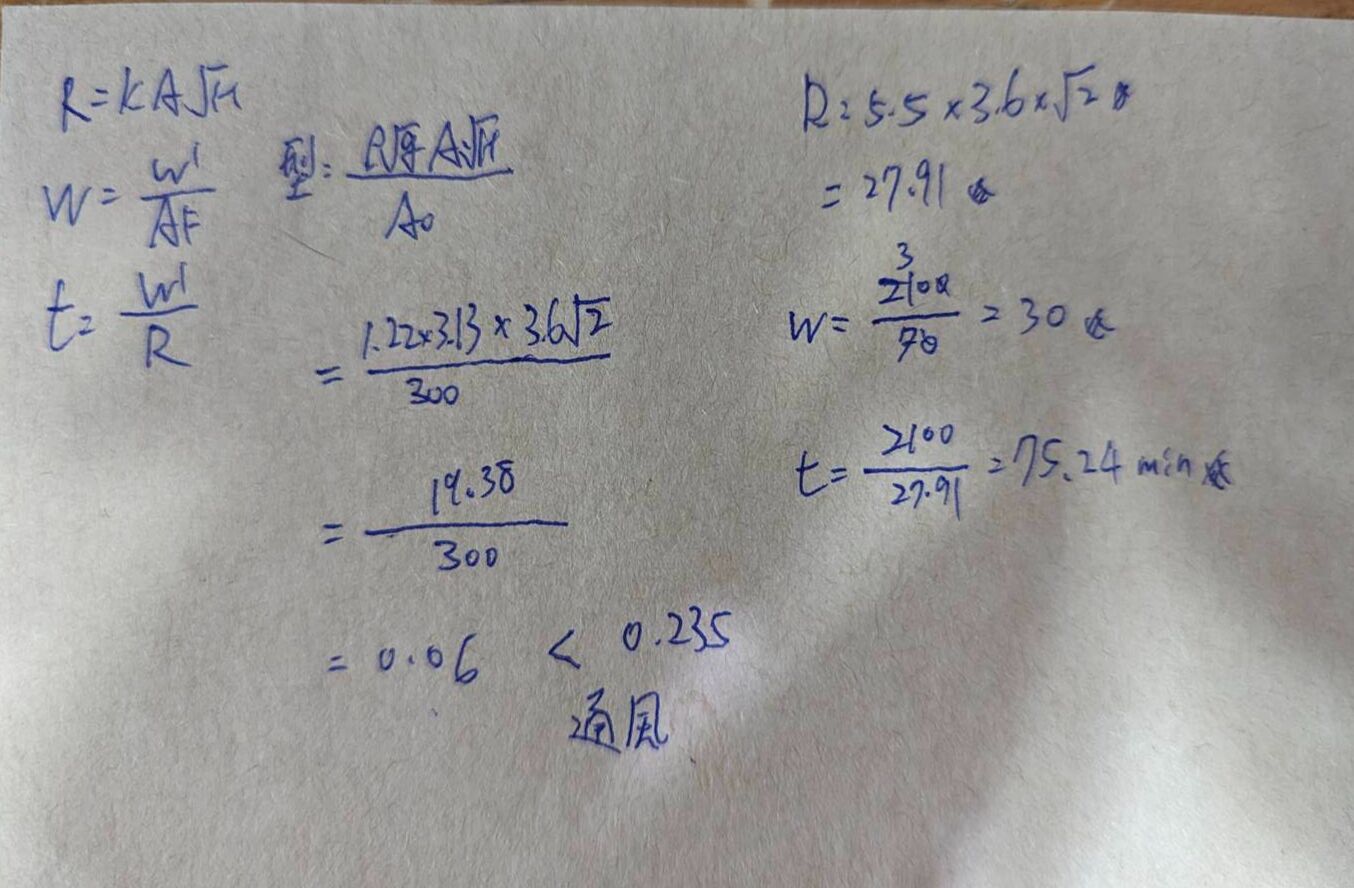 R=KA√H
W=W'/AF
t=W'/R
型:ρ√g A√H/A₀
=1.22×3.13×3.6√2/300
=19.38/300
=0.06 < 0.235
通風
R=5.5×3.6×√2
=27.91
W=2100/70=30
3
t=2100/27.91=75.24 min